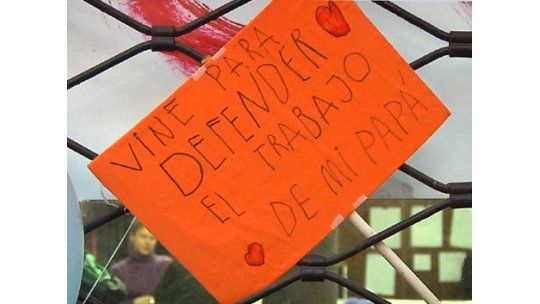 VINE PARA
DEFENDER
EL TRABAJO
DE MI PAPÁ